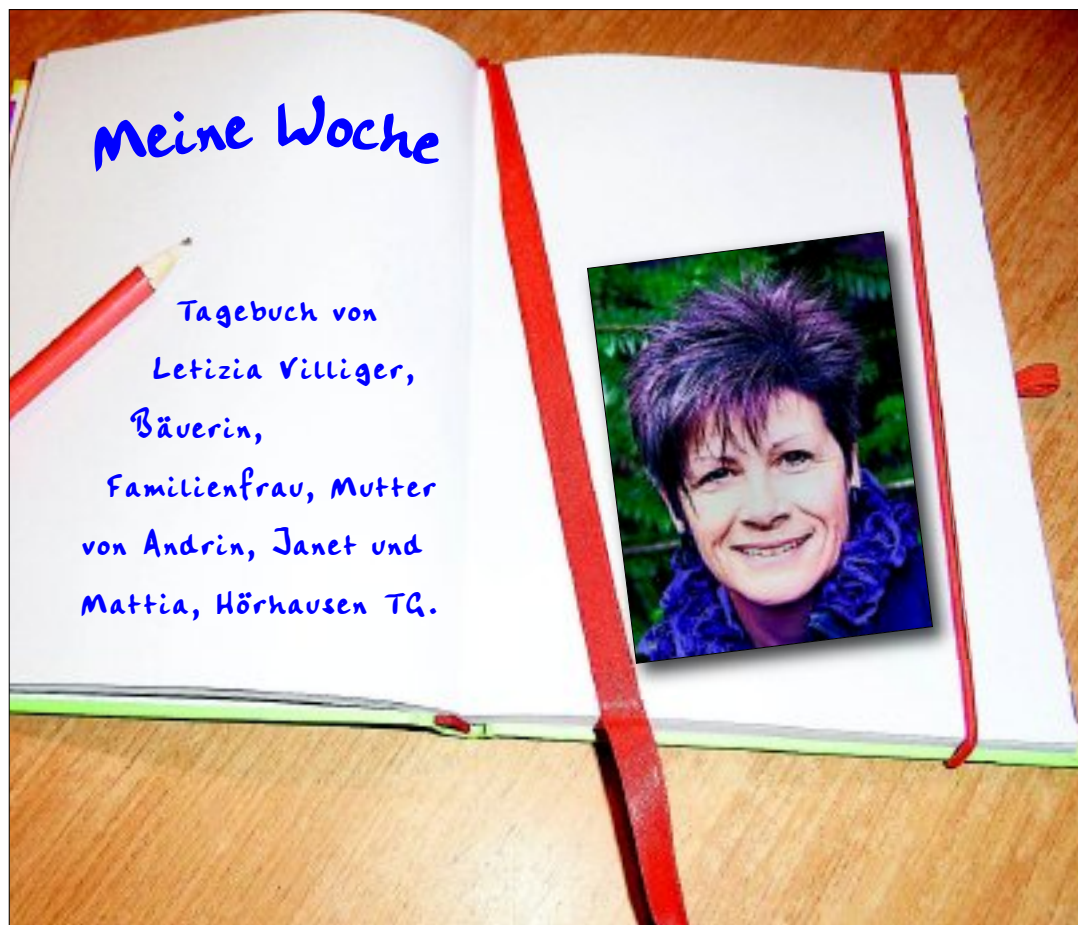 Meine Woche
Tagebuch von
Letizia Villiger,
Bäuerin,
Familienfrau, Mutter
von Andrin, Janet und
Mattia, Hörhausen TG.